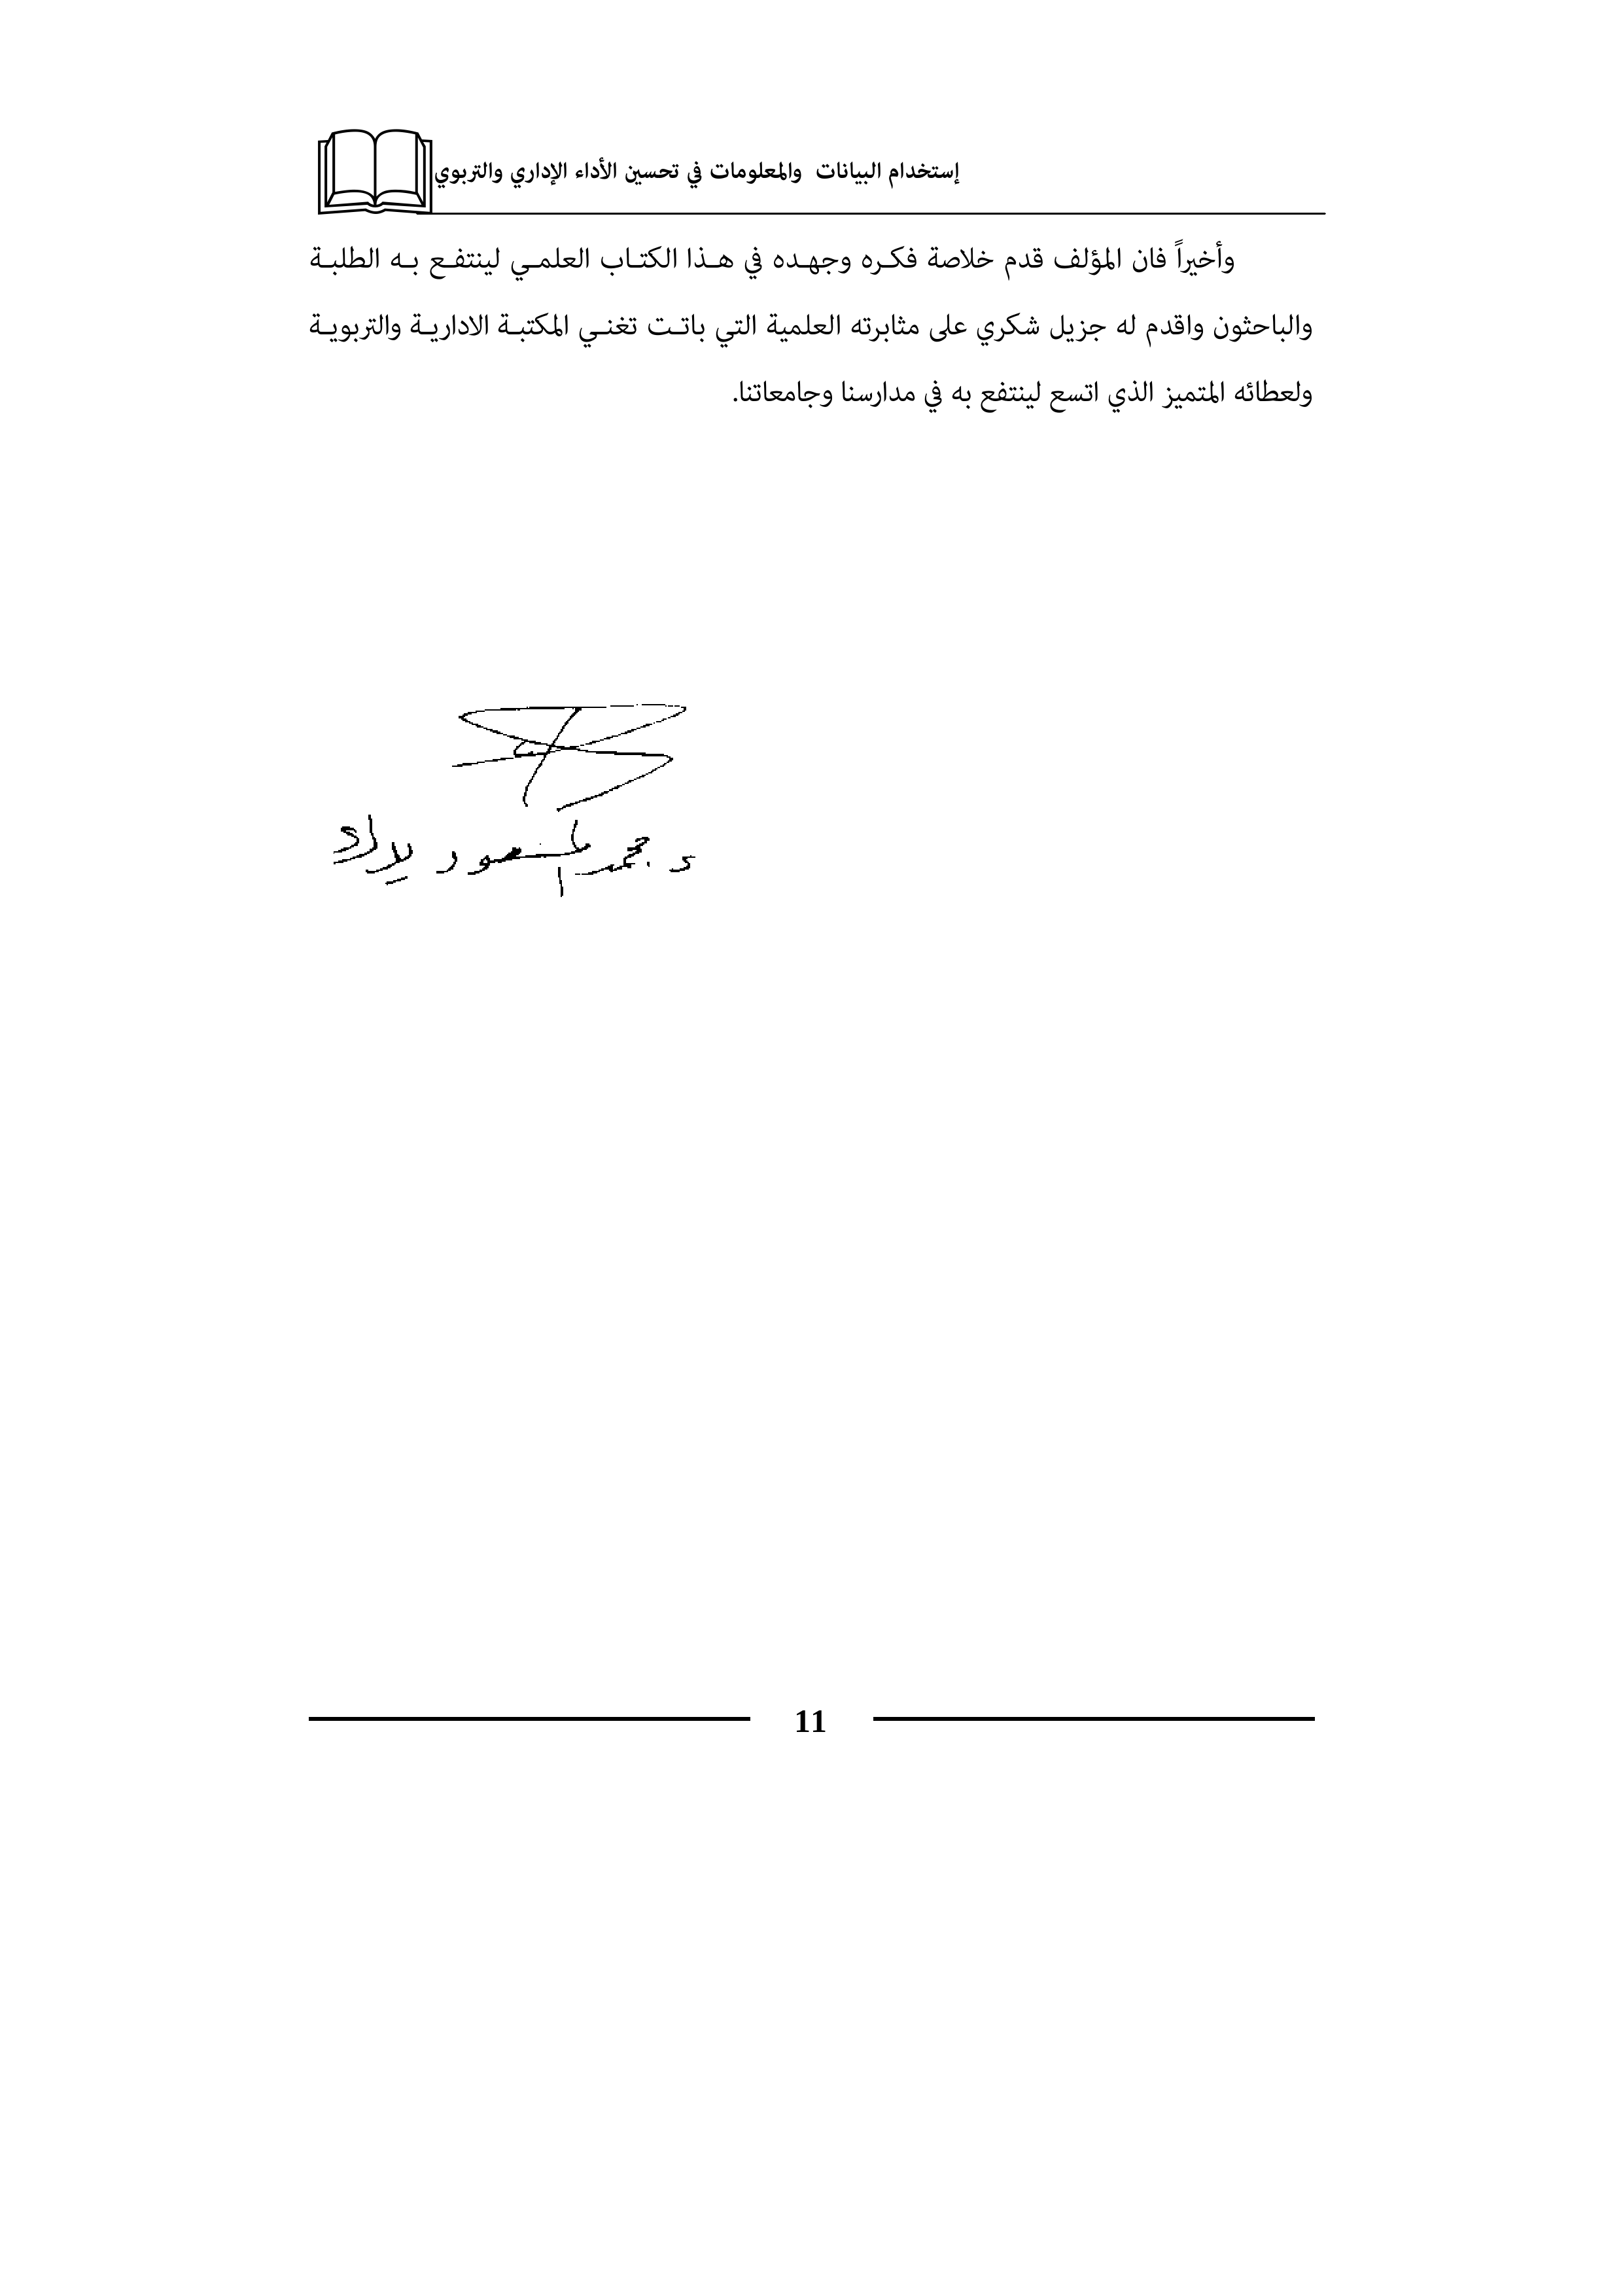 إستخدام البيانات والمعلومات في تحسين الأداء الإداري والتربوي
وأخيراً فان المؤلف قدم خلاصة فكره وجهده في هذا الكتاب العلمي لينتفع به الطلبة
والباحثون واقدم له جزيل شكري على مثابرته العلمية التي باتت تغني المكتبة الادارية والتربوية
ولعطائه المتميز الذي اتسع لينتفع به في مدارسنا وجامعاتنا.
د. محمد
11